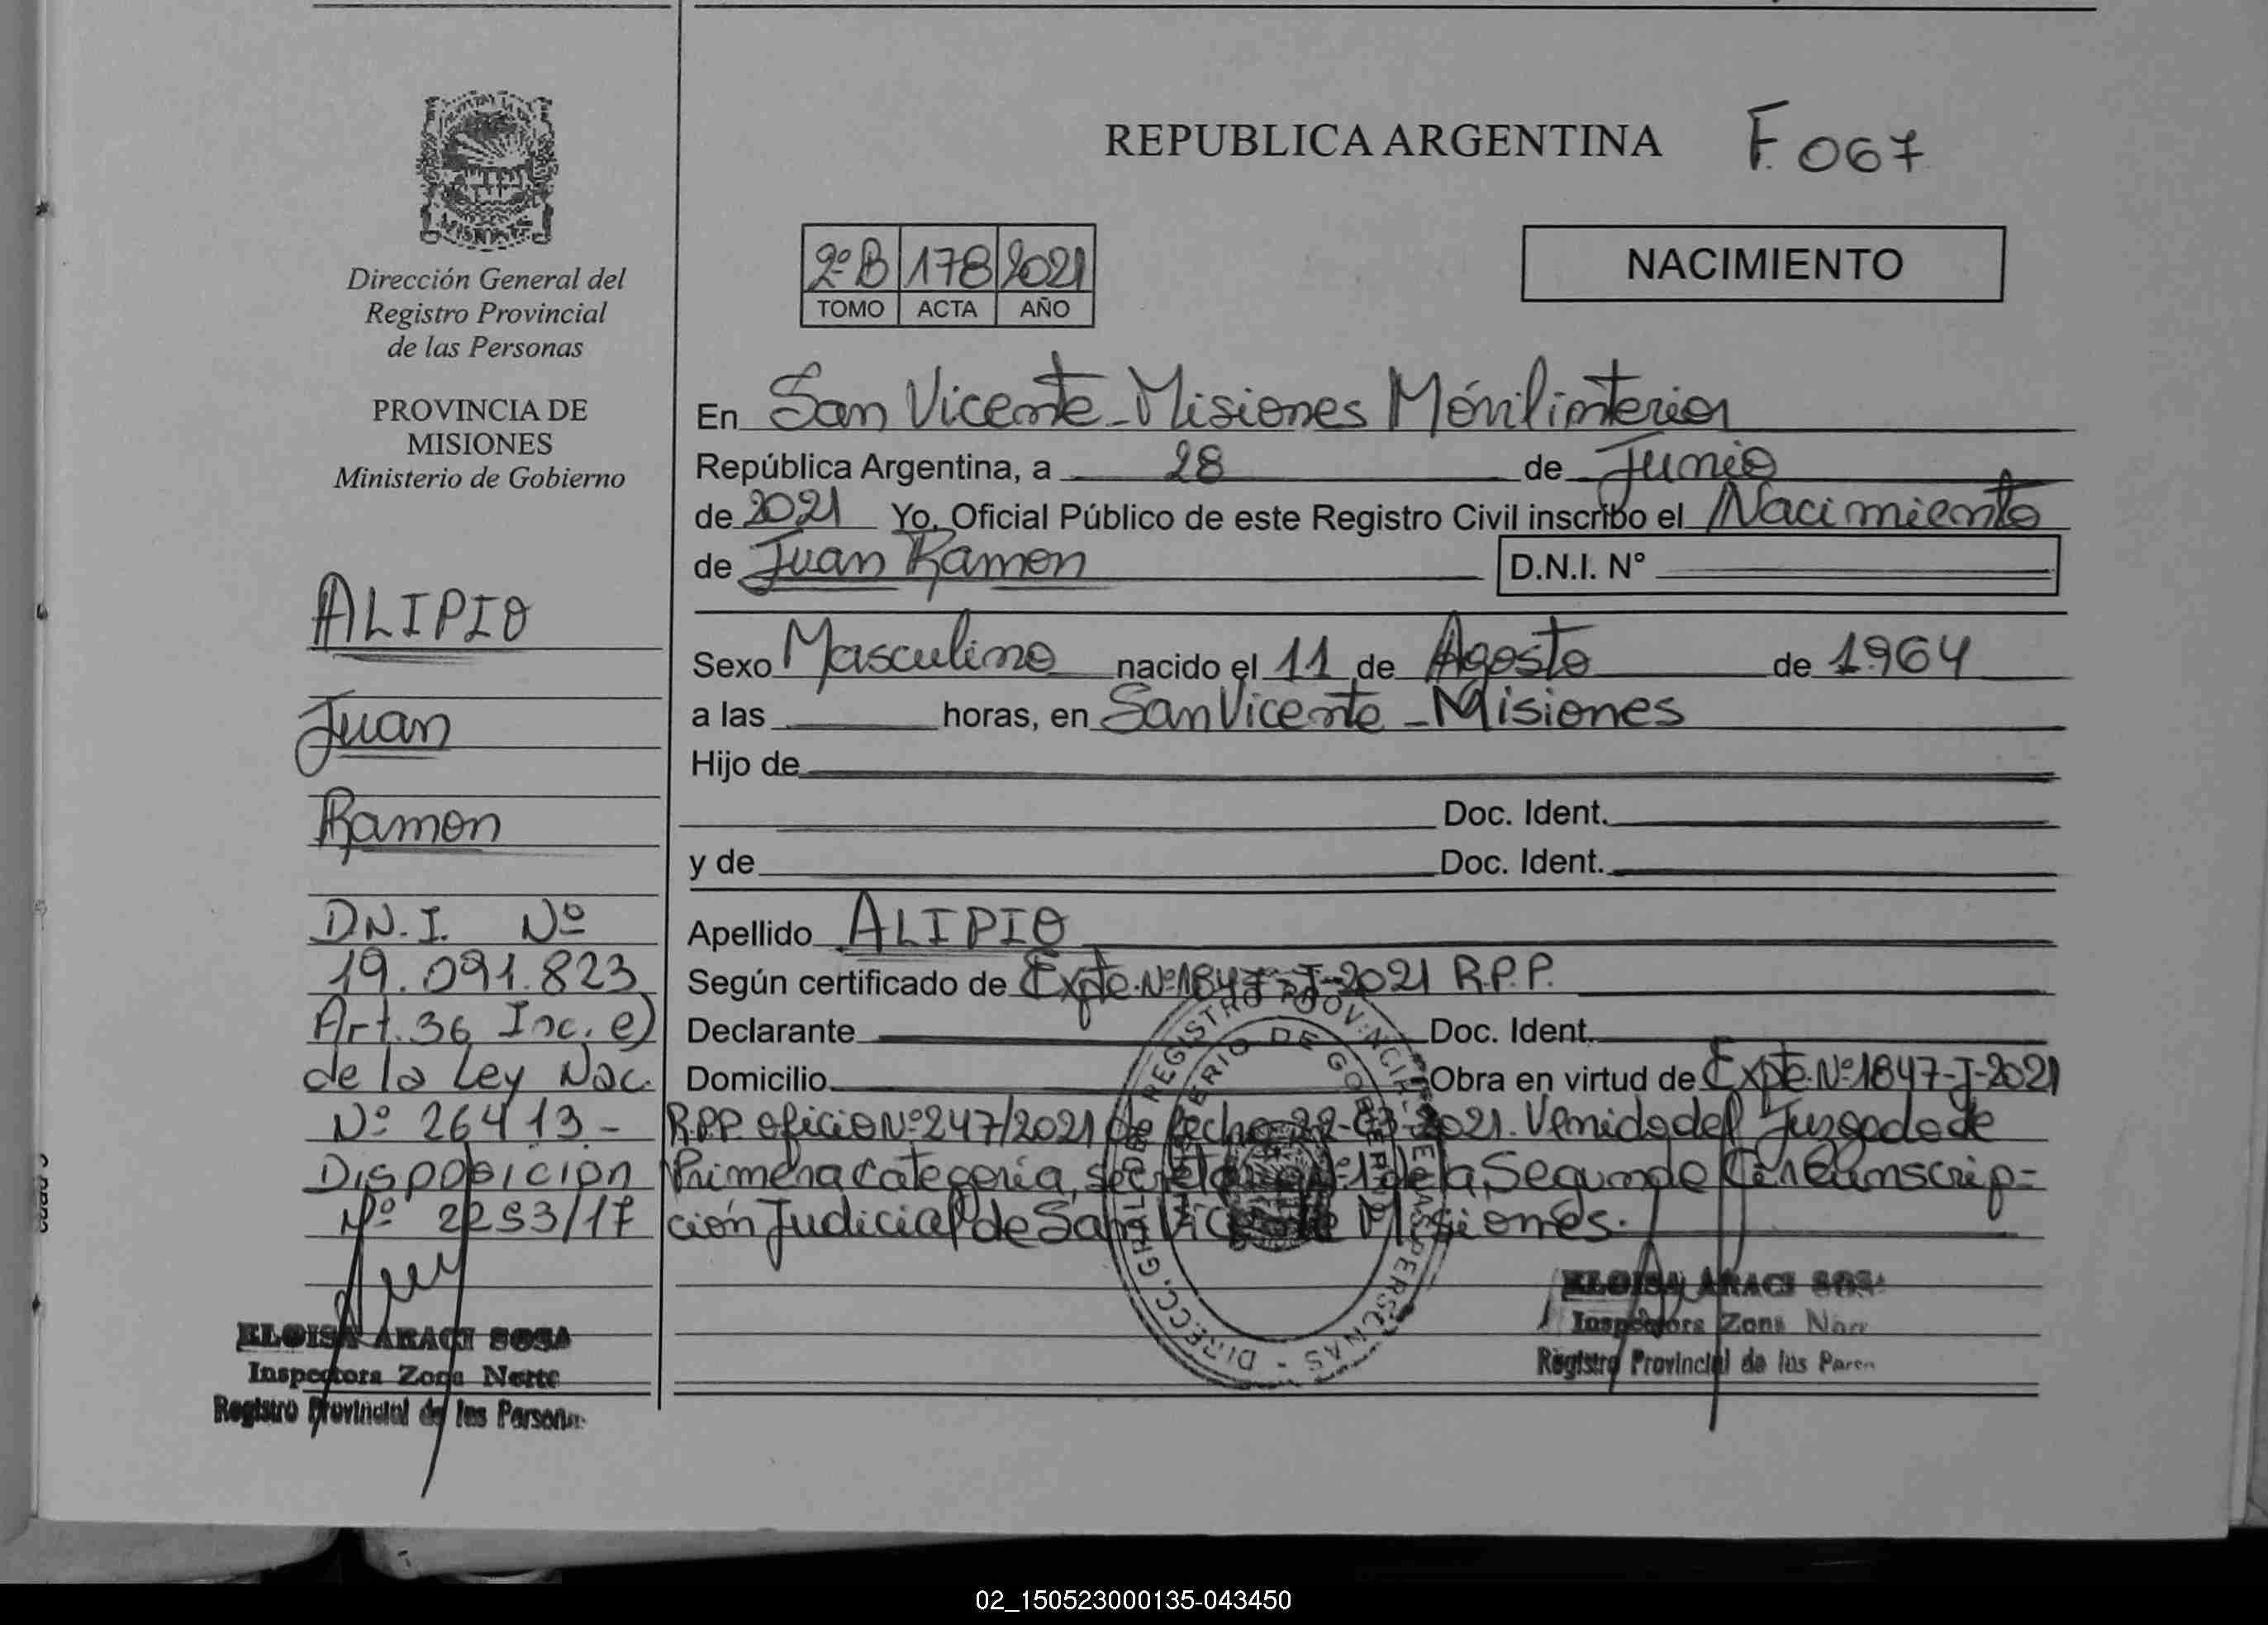 REPUBLICA ARGENTINA F. 067
MISIONES
Dirección General del
Registro Provincial
de las Personas
PROVINCIA DE
MISIONES
Ministerio de Gobierno
ALIPIO
Juan
Ramon
D.N.I. Nº
19.091.823
Art. 36 Inc. e)
de la Ley Nac.
Nº 26413.-
Disposicion
Nº 2253/17
ELOISA ARACI SOSA
Inspectora Zona Norte
Registro Provincial de las Personas
2º B 178 2021
TOMO ACTA AÑO
NACIMIENTO
En San Vicente - Misiones Móvil interior
República Argentina, a 28 de Junio
de 2021 Yo, Oficial Público de este Registro Civil inscribo el Nacimiento
de Juan Ramon D.N.I. Nº
Sexo Masculino nacido el 11 de Agosto de 1964
a las horas, en San Vicente - Misiones
Hijo de
Doc. Ident.
y de Doc. Ident.
Apellido ALIPIO
Según certificado de Expte. Nº 1847-J-2021 R.P.P.
Declarante Doc. Ident.
Domicilio Obra en virtud de Expte. Nº 1847-J-2021
R.P.P. oficio Nº 247/2021 de fecha 22-03-2021. Venido del Juzgado de
Primera Categoria, secretaria Nº 1 de la Segunda Circunscrip=
ción Judicial de San Vicente Misiones.
ELOISA ARACI SOSA
Inspectora Zona Nor
Registro Provincial de las Person
02_150523000135-043450